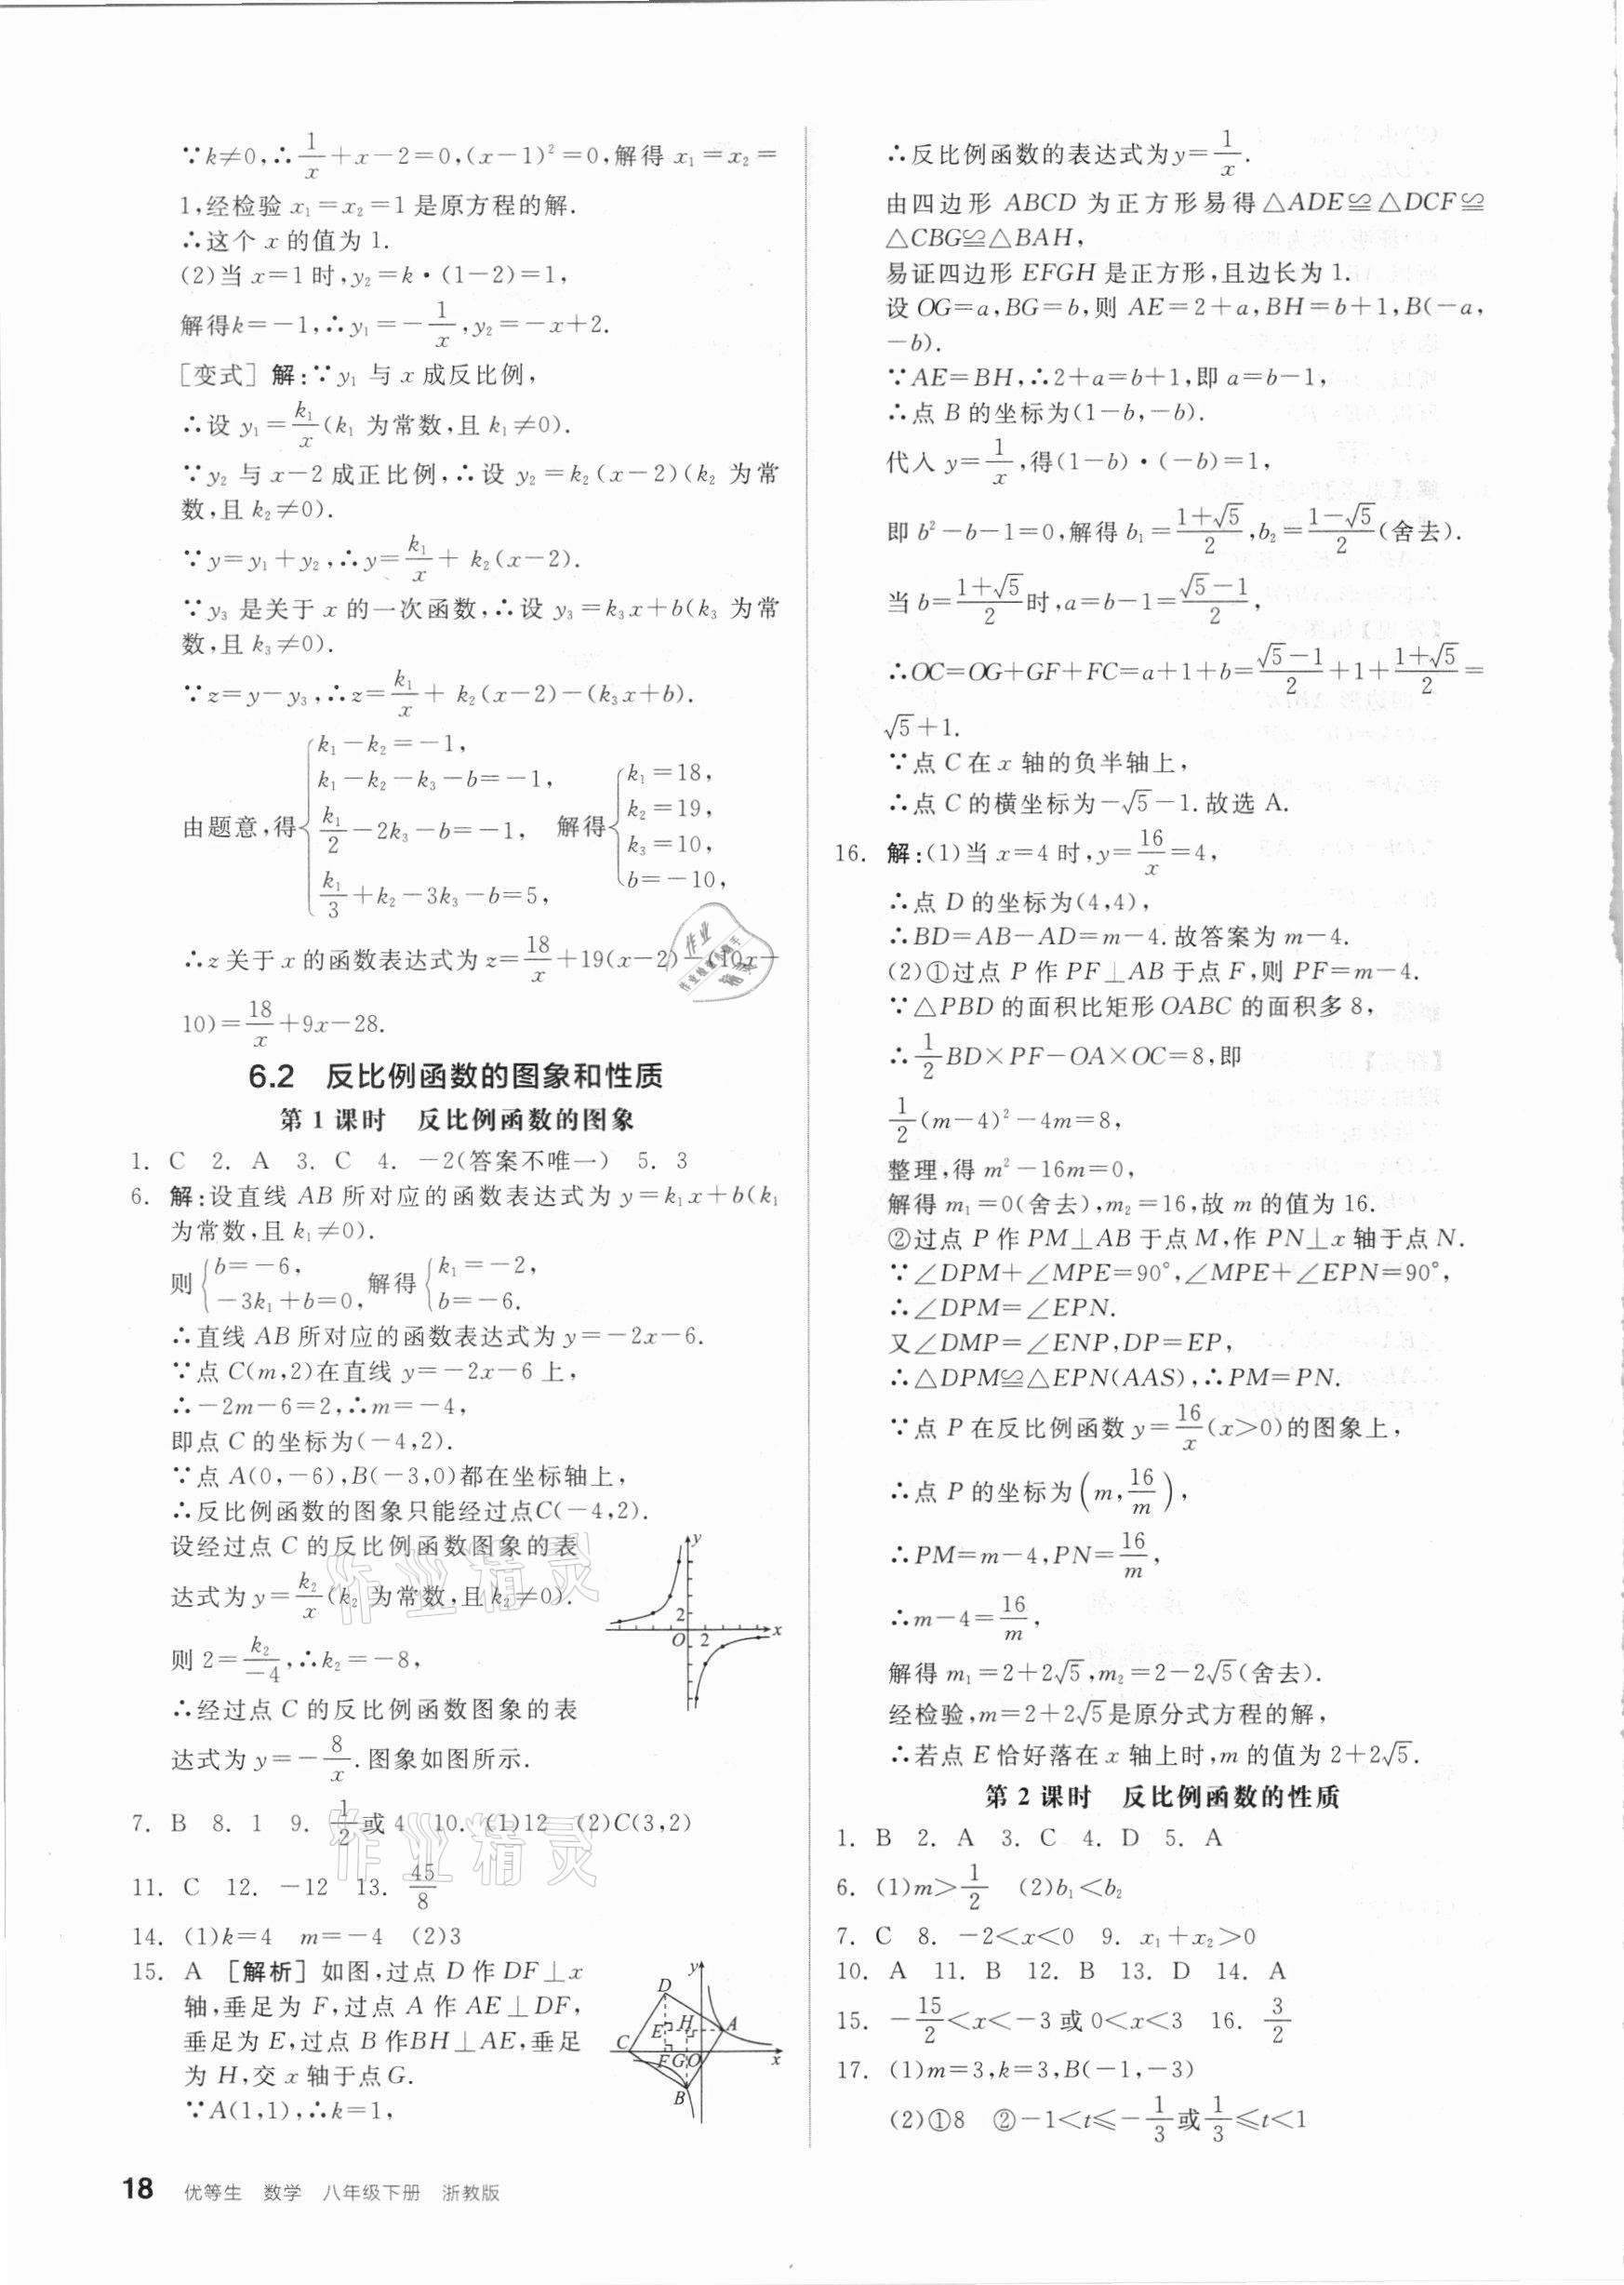 ∵k≠0,∴1/x+x-2=0,(x-1)²=0,解得 x₁=x₂=
1,经检验 x₁=x₂=1 是原方程的解.
∴这个 x 的值为 1.
(2)当 x=1 时,y₂=k·(1-2)=1,
解得k=-1,∴y₁=-1/x,y₂=-x+2.
[变式] 解:∵y₁ 与 x 成反比例,
∴设 y₁=k₁/x(k₁ 为常数,且 k₁≠0).
∵y₂ 与 x-2 成正比例,∴设 y₂=k₂(x-2)(k₂ 为常
数,且 k₂≠0).
∵y=y₁+y₂,∴y=k₁/x+k₂(x-2).
∵y₃ 是关于 x 的一次函数,∴设 y₃=k₃x+b(k₃ 为常
数,且 k₃≠0).
∵z=y-y₃,∴z=k₁/x+k₂(x-2)-(k₃x+b).
由题意,得{k₁-k₂=-1, k₁-k₂-k₃-b=-1, k₁/2-2k₃-b=-1, k₁/3+k₂-3k₃-b=5, 解得{k₁=18, k₂=19, k₃=10, b=-10,
∴z关于 x 的函数表达式为 z=18/x+19(x-2)-(10x-
10)=18/x+9x-28.
6.2 反比例函数的图象和性质
第 1 课时 反比例函数的图象
1. C 2. A 3. C 4. -2(答案不唯一) 5. 3
6. 解:设直线 AB 所对应的函数表达式为 y=k₁x+b(k₁
为常数,且 k₁≠0).
则{b=-6, -3k₁+b=0, 解得{k₁=-2, b=-6.
∴直线 AB 所对应的函数表达式为 y=-2x-6.
∵点 C(m,2)在直线 y=-2x-6 上,
∴-2m-6=2,∴m=-4,
即点 C 的坐标为(-4,2).
∵点 A(0,-6),B(-3,0)都在坐标轴上,
∴反比例函数的图象只能经过点C(-4,2).
设经过点 C 的反比例函数图象的表
达式为 y=k₂/x(k₂ 为常数,且 k₂≠0).
则 2=k₂/-4,∴k₂=-8,
∴经过点 C 的反比例函数图象的表
达式为 y=-8/x.图象如图所示.
y
2
O 2 x
7. B 8. 1 9. 1/2或 4 10. (1)12 (2)C(3,2)
11. C 12. -12 13. 45/8
14. (1)k=4 m=-4 (2)3
15. A [解析] 如图,过点 D 作 DF⊥x
轴,垂足为 F,过点 A 作 AE⊥DF,
垂足为 E,过点 B 作BH⊥AE,垂足
为 H,交 x 轴于点G.
∵A(1,1),∴k=1,
y
D
E H A
C
F G O x
B
∴反比例函数的表达式为 y=1/x.
由四边形 ABCD 为正方形易得△ADE≌△DCF≌
△CBG≌△BAH,
易证四边形 EFGH 是正方形,且边长为 1.
设 OG=a,BG=b,则 AE=2+a,BH=b+1,B(-a,
-b).
∵AE=BH,∴2+a=b+1,即 a=b-1,
∴点 B 的坐标为(1-b,-b).
代入 y=1/x,得(1-b)·(-b)=1,
即 b²-b-1=0,解得 b₁=(1+√5)/2,b₂=(1-√5)/2(舍去).
当 b=(1+√5)/2时,a=b-1=(√5-1)/2,
∴OC=OG+GF+FC=a+1+b=(√5-1)/2+1+(1+√5)/2=
√5+1.
∵点 C 在 x 轴的负半轴上,
∴点 C 的横坐标为-√5-1.故选 A.
16. 解:(1)当 x=4 时,y=16/x=4,
∴点 D 的坐标为(4,4),
∴BD=AB-AD=m-4.故答案为 m-4.
(2)①过点 P 作 PF⊥AB 于点 F,则 PF=m-4.
∵△PBD 的面积比矩形 OABC 的面积多 8,
∴1/2BD×PF-OA×OC=8,即
1/2(m-4)²-4m=8,
整理,得 m²-16m=0,
解得 m₁=0(舍去),m₂=16,故 m 的值为 16.
②过点 P 作 PM⊥AB 于点 M,作 PN⊥x 轴于点 N.
∵∠DPM+∠MPE=90°,∠MPE+∠EPN=90°,
∴∠DPM=∠EPN.
又∠DMP=∠ENP,DP=EP,
∴△DPM≌△EPN(AAS),∴PM=PN.
∵点 P 在反比例函数 y=16/x(x>0)的图象上,
∴点 P 的坐标为(m,16/m),
∴PM=m-4,PN=16/m,
∴m-4=16/m,
解得 m₁=2+2√5,m₂=2-2√5(舍去).
经检验,m=2+2√5是原分式方程的解,
∴若点 E 恰好落在 x 轴上时,m 的值为 2+2√5.
第 2 课时 反比例函数的性质
1. B 2. A 3. C 4. D 5. A
6. (1)m>1/2 (2)b₁<b₂
7. C 8. -2<x<0 9. x₁+x₂>0
10. A 11. B 12. B 13. D 14. A
15. -15/2<x<-3 或 0<x<3 16. 3/2
17. (1)m=3,k=3,B(-1,-3)
(2)①8 ②-1<t≤-1/3或1/3≤t<1
18 优等生 数学 八年级下册 浙教版
作业精灵
作业精灵